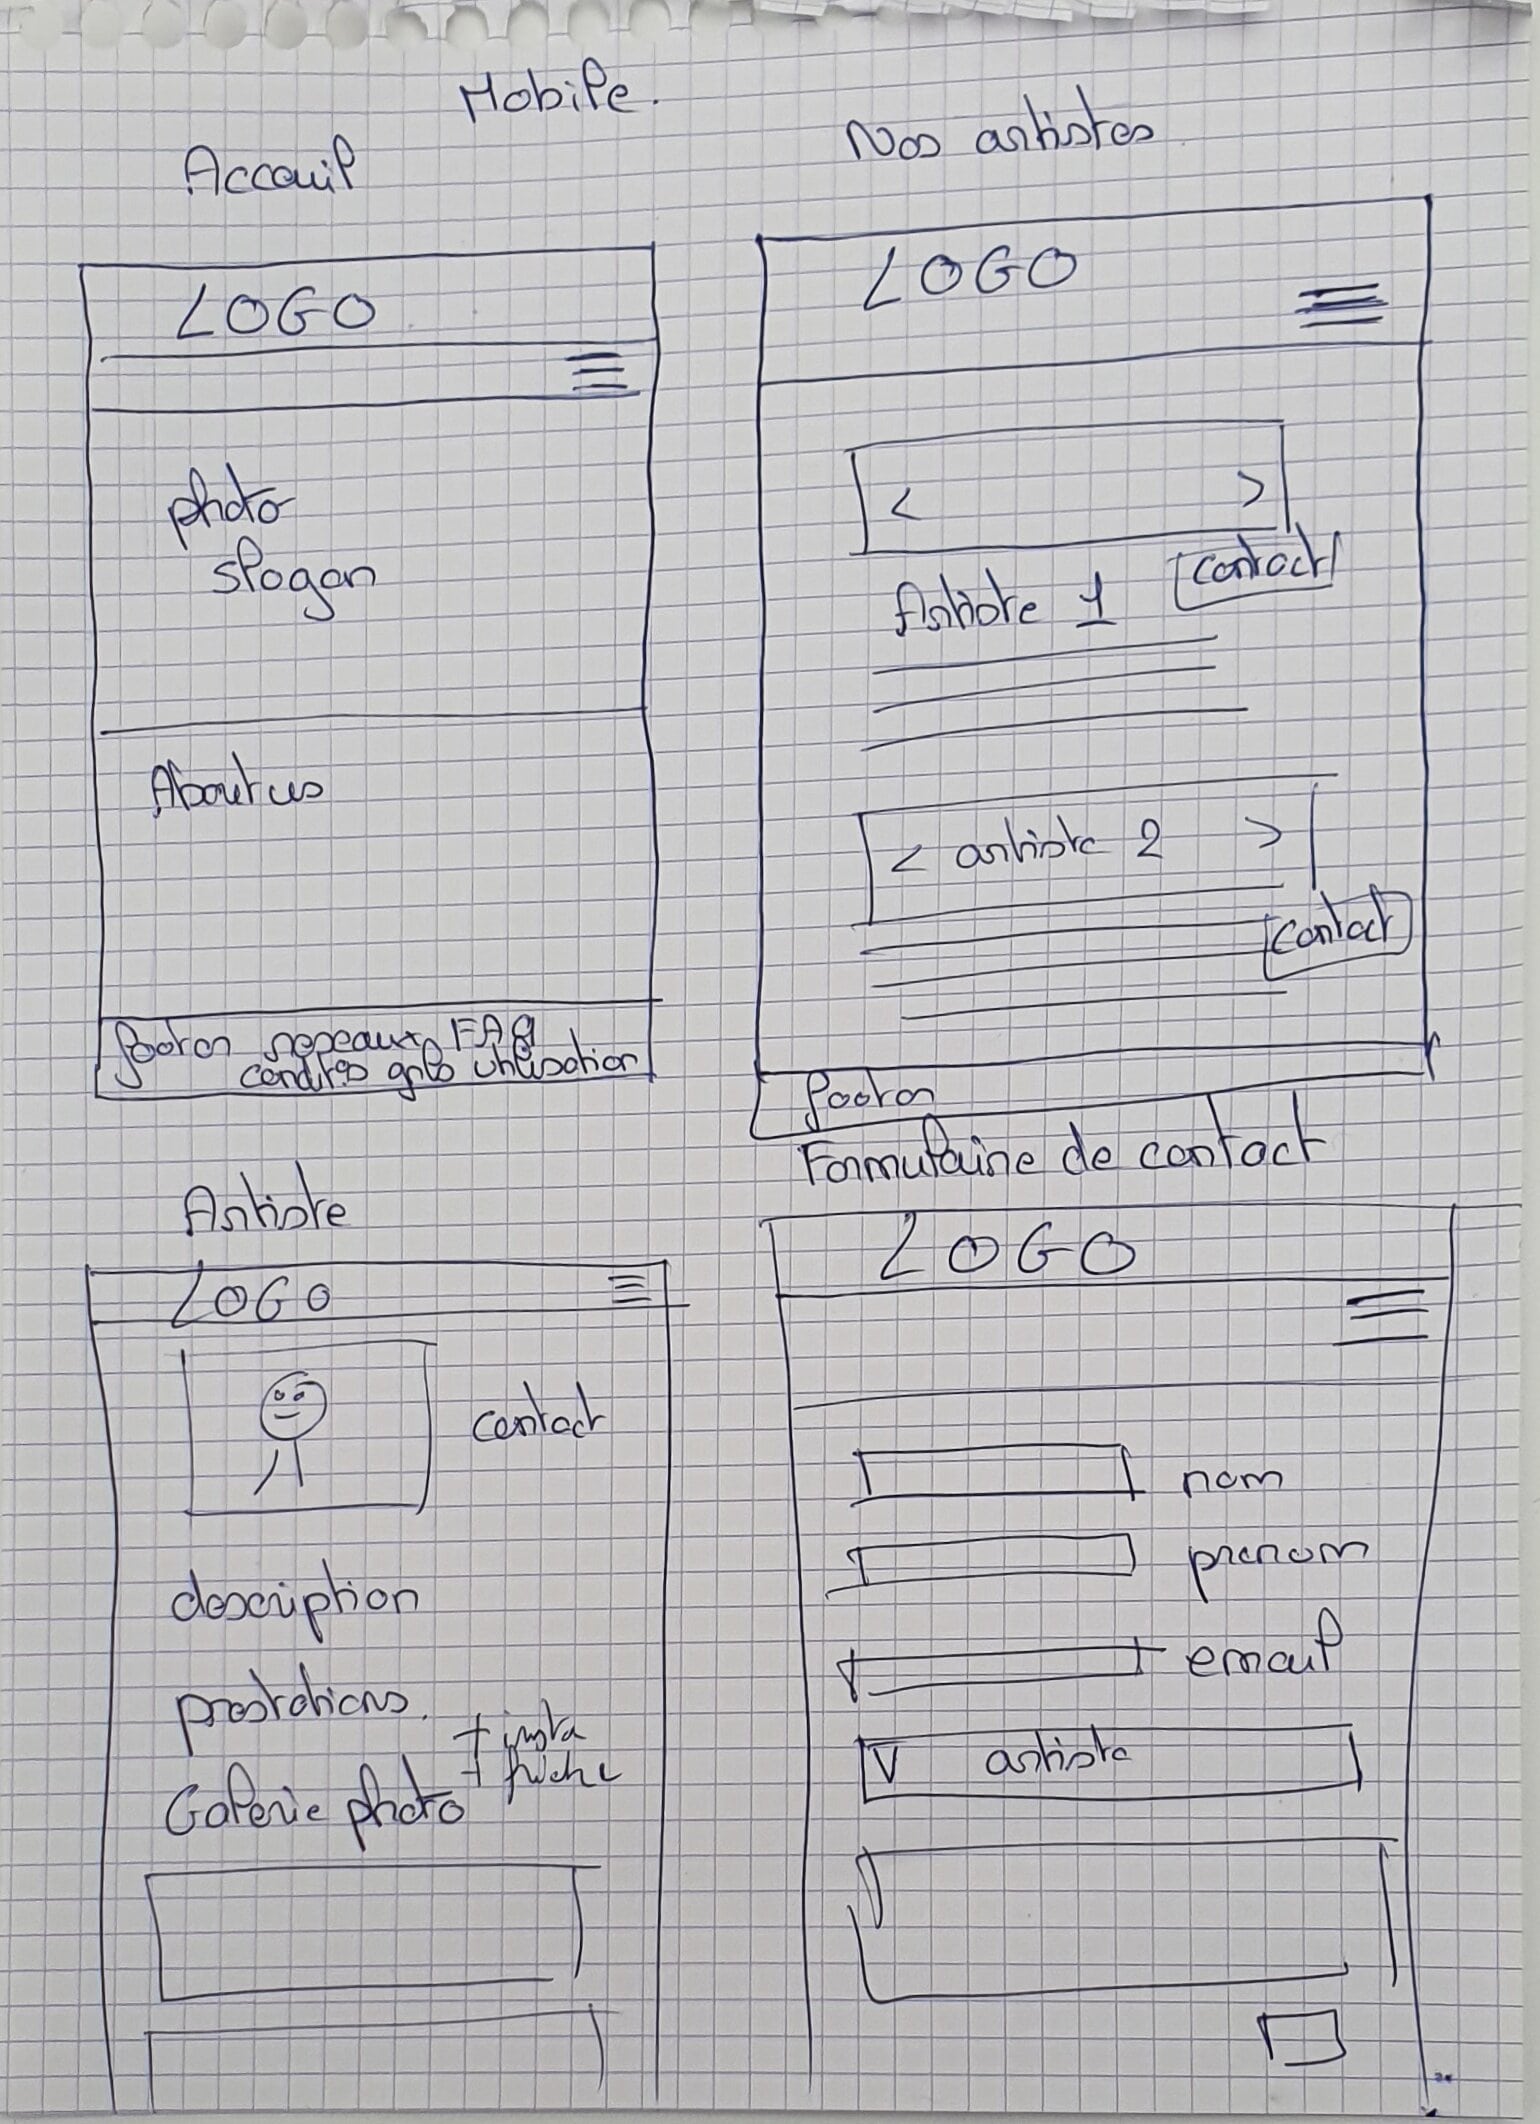 Mobile.
Accueil
LOGO
photo
slogan
About us
footer reseaux FAQ
condit° gnles utilisation
Nos artistes
LOGO
< >
Artiste 1
contact
< artiste 2 >
contact
footer
Artiste
LOGO
contact
description
prestations.
Galerie photo
+ insta
+ friche
Formulaire de contact
LOGO
nom
prenom
email
V artiste